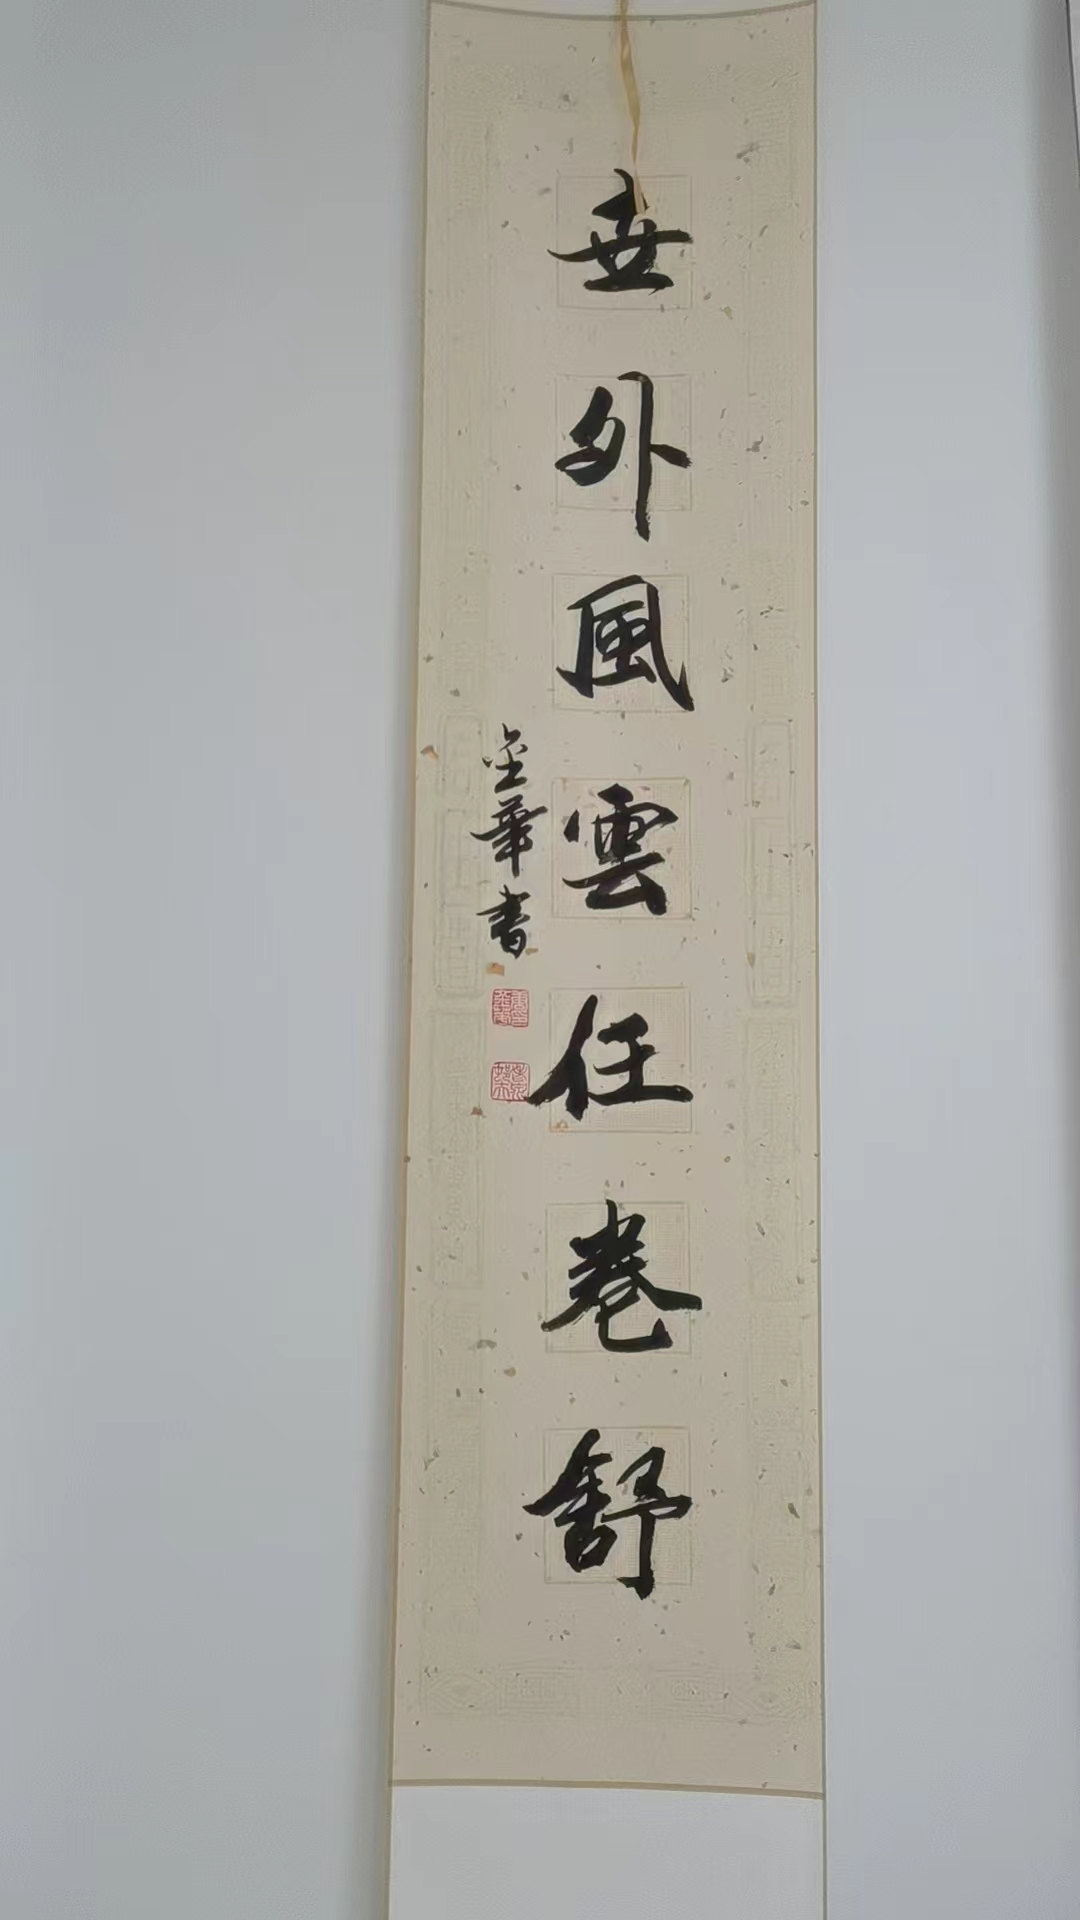 世外風雲任卷舒
金華書